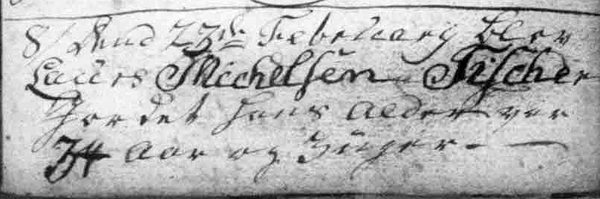 8/ Dend 23de Februarÿ blev
Laures Michelsen Fischer
Jordet hans alder var
74 Aar og 3 uger